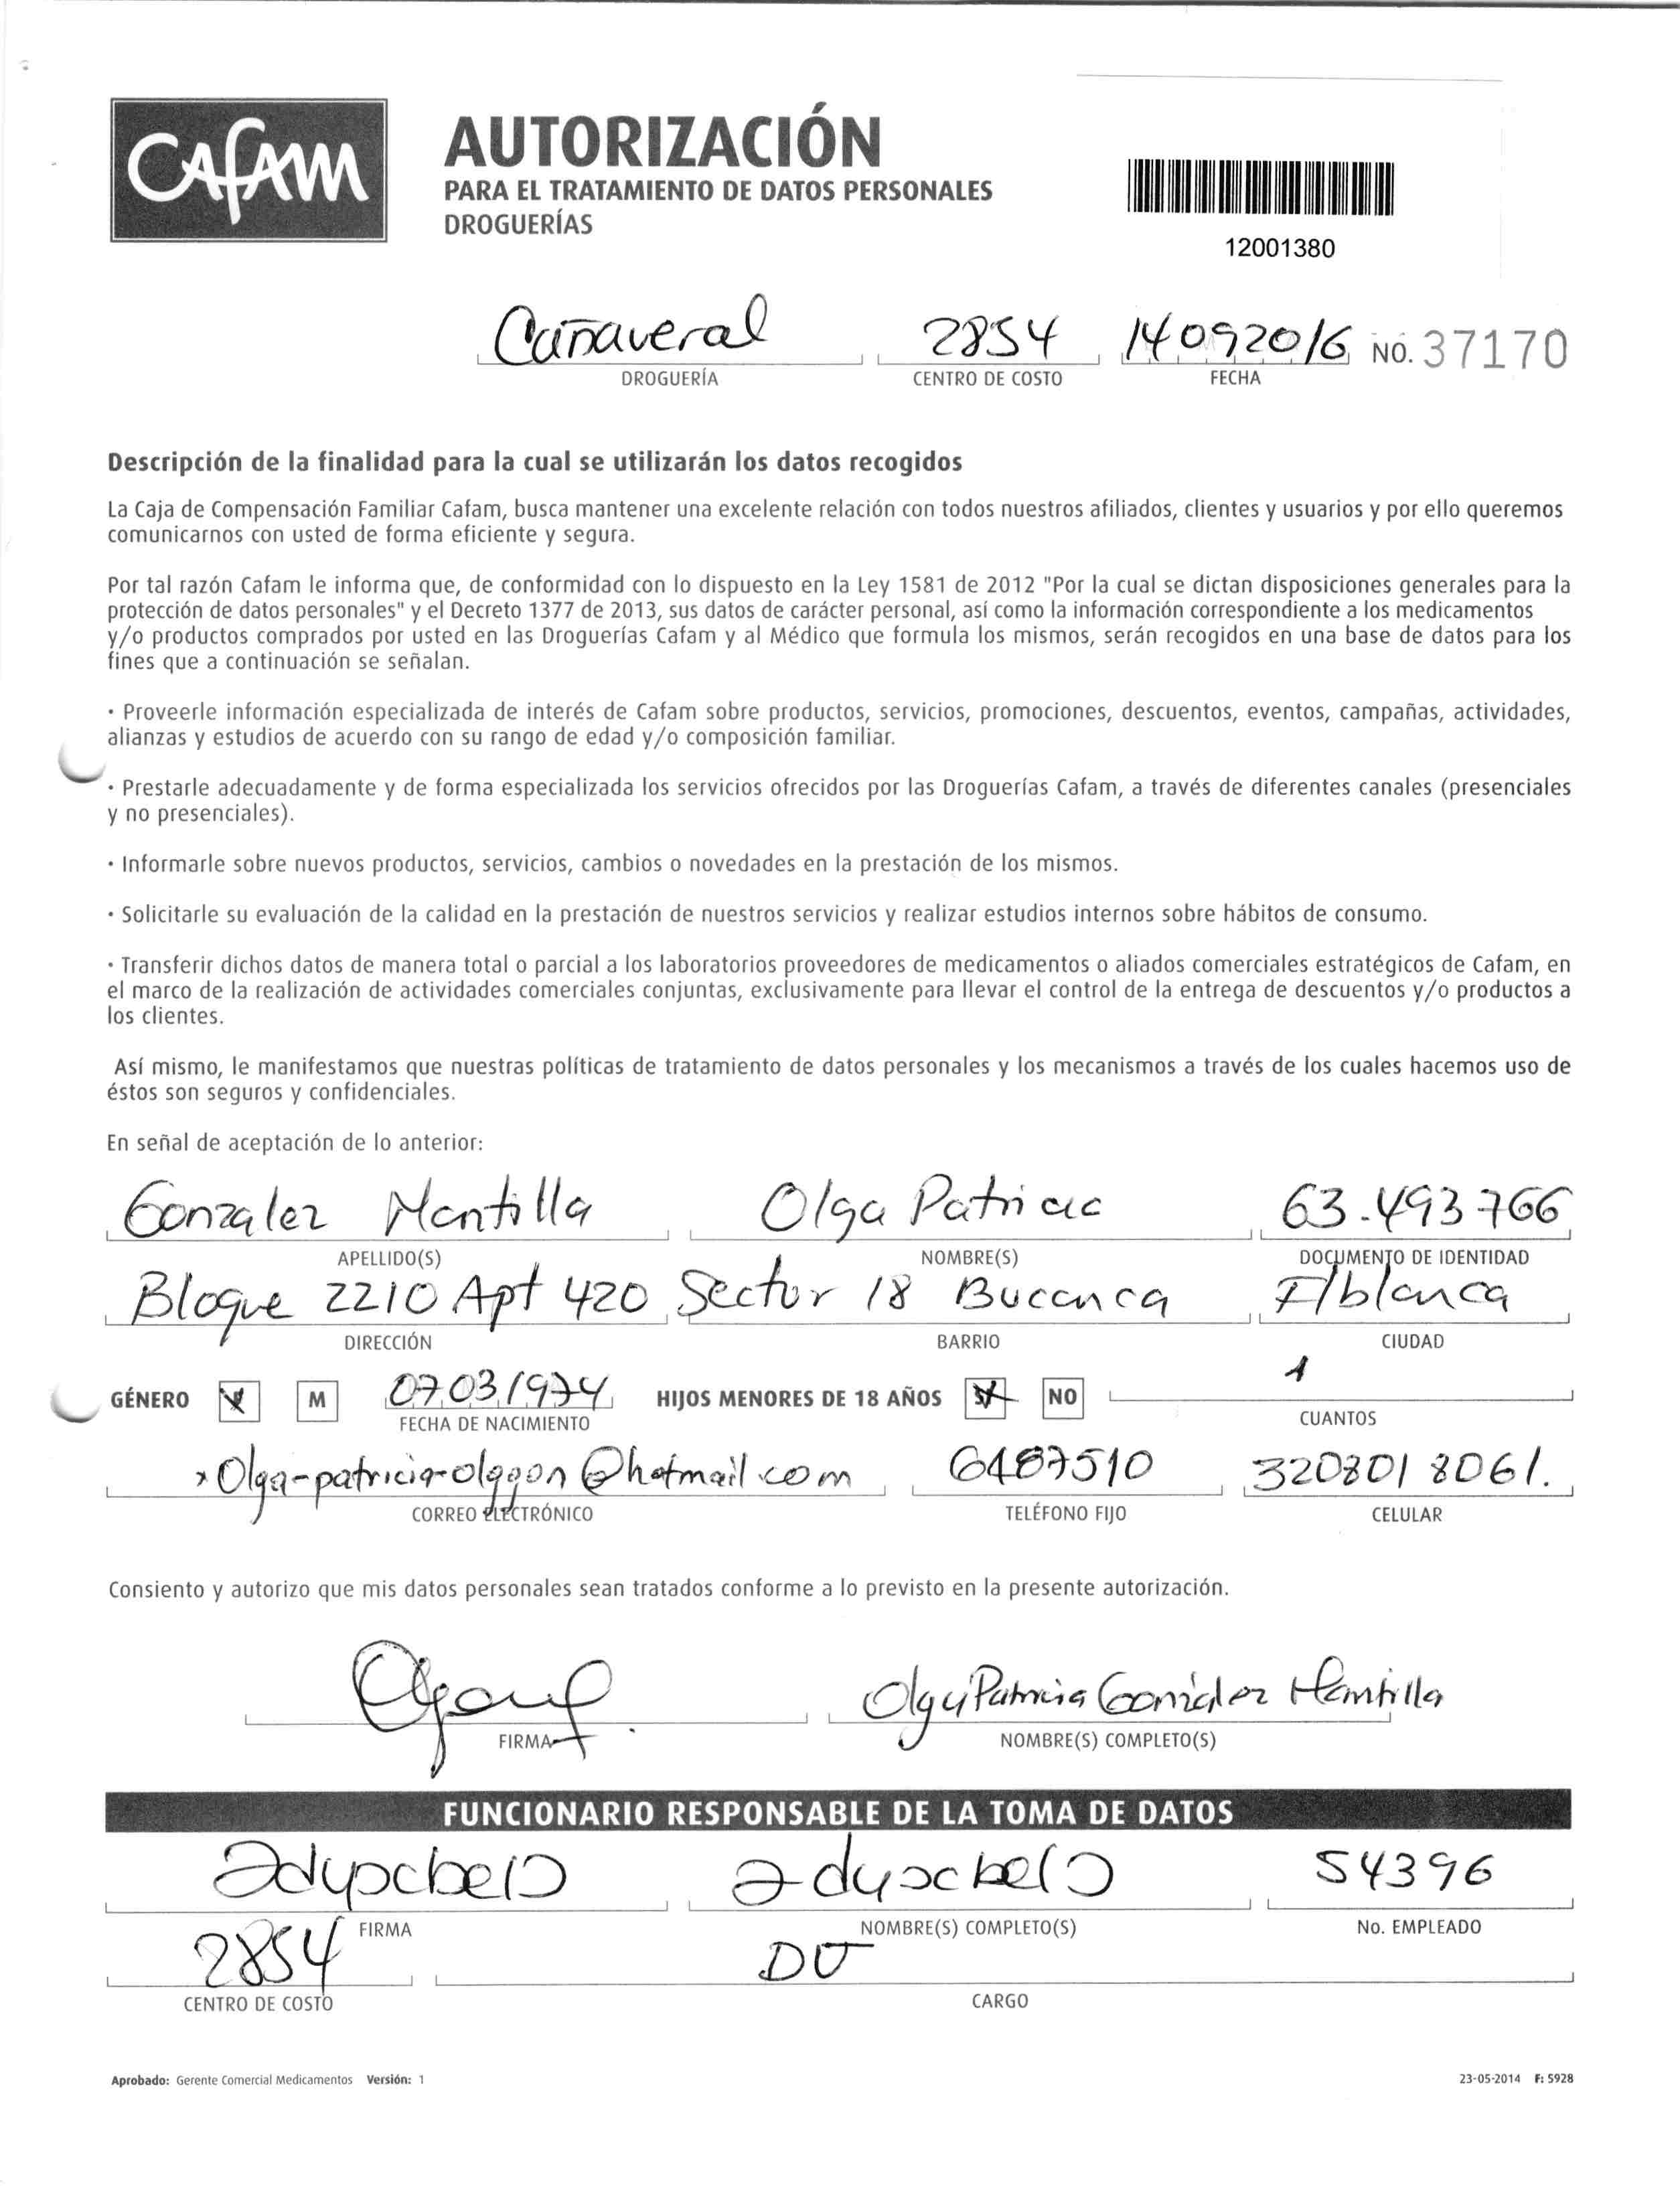 CAFAM
AUTORIZACIÓN
PARA EL TRATAMIENTO DE DATOS PERSONALES
DROGUERÍAS
12001380
Cañaveral 2854 14092016 NO. 37170
DROGUERÍA CENTRO DE COSTO FECHA
Descripción de la finalidad para la cual se utilizarán los datos recogidos
La Caja de Compensación Familiar Cafam, busca mantener una excelente relación con todos nuestros afiliados, clientes y usuarios y por ello queremos
comunicarnos con usted de forma eficiente y segura.
Por tal razón Cafam le informa que, de conformidad con lo dispuesto en la Ley 1581 de 2012 "Por la cual se dictan disposiciones generales para la
protección de datos personales" y el Decreto 1377 de 2013, sus datos de carácter personal, así como la información correspondiente a los medicamentos
y/o productos comprados por usted en las Droguerías Cafam y al Médico que formula los mismos, serán recogidos en una base de datos para los
fines que a continuación se señalan.
• Proveerle información especializada de interés de Cafam sobre productos, servicios, promociones, descuentos, eventos, campañas, actividades,
alianzas y estudios de acuerdo con su rango de edad y/o composición familiar.
• Prestarle adecuadamente y de forma especializada los servicios ofrecidos por las Droguerías Cafam, a través de diferentes canales (presenciales
y no presenciales).
• Informarle sobre nuevos productos, servicios, cambios o novedades en la prestación de los mismos.
• Solicitarle su evaluación de la calidad en la prestación de nuestros servicios y realizar estudios internos sobre hábitos de consumo.
• Transferir dichos datos de manera total o parcial a los laboratorios proveedores de medicamentos o aliados comerciales estratégicos de Cafam, en
el marco de la realización de actividades comerciales conjuntas, exclusivamente para llevar el control de la entrega de descuentos y/o productos a
los clientes.
Así mismo, le manifestamos que nuestras políticas de tratamiento de datos personales y los mecanismos a través de los cuales hacemos uso de
éstos son seguros y confidenciales.
En señal de aceptación de lo anterior:
Gonzalez Mantilla Olga Patricia 63.493766
APELLIDO(S) NOMBRE(S) DOCUMENTO DE IDENTIDAD
Bloque 2210 Apt 420 Sector 18 Bucanca F/blanca
DIRECCIÓN BARRIO CIUDAD
GÉNERO M 07031974 HIJOS MENORES DE 18 AÑOS SI NO 1
FECHA DE NACIMIENTO CUANTOS
Olga-patricia-olggon@hotmail.com 6487510 3208018061.
CORREO ELECTRÓNICO TELÉFONO FIJO CELULAR
Consiento y autorizo que mis datos personales sean tratados conforme a lo previsto en la presente autorización.
Olga Patricia Gonzalez Mantilla
FIRMA NOMBRE(S) COMPLETO(S)
FUNCIONARIO RESPONSABLE DE LA TOMA DE DATOS
54396
FIRMA NOMBRE(S) COMPLETO(S) No. EMPLEADO
2854 DU
CENTRO DE COSTO CARGO
Aprobado: Gerente Comercial Medicamentos Versión: 1 23-05-2014 F: 5928